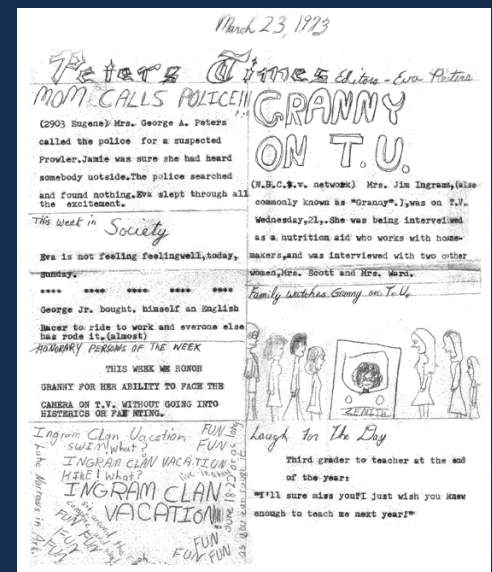 March 23, 1973
Peters Times
Editors - Eva Peters
MOM CALLS POLICE!!!
(2903 Eugene) Mrs. George A. Peters
called the police for a suspected
Prowler.Jamie was sure she had heard
somebody uotside.The police searched
and found nothing.Eva slept through all
the excitement.
This week in
Society
Eva is not feeling feelingwell,today,
sunday.
**** **** **** **** ****
George Jr. bought. himself an English
Racer to ride to work and everone else
has rode it.(almost)
HONORARY PERSONS OF THE WEEK
THIS WEEK WE HONOR
GRANNY FOR HER ABILITY TO FACE THE
CAMERA ON T.V. WITHOUT GOING INTO
HISTERICS OR FAINTING.
Ingram Clan Vacation
SWIM! What?
INGRAM CLAN VACATION
HIKE! What?
INGRAM CLAN
VACATION!!!
FUN
FUN
FUN
FUN
FUN
FUN
FUN
FUN
FUN FUN
Lake Norrows in Ark.
June 18-22 or as long
as you can
GRANNY
ON T.V.
(N.B.C.T.v. network) Mrs. Jim Ingram,(also
commonly known as "Granny".),was on T.V.
Wednesday,21,.She was being interveiwed
as a nutrition aid who works with home-
makers,and was interviewed with two other
women,Mrs. Scott and Mrs. Ward.
Family Watches Granny on T.V.
ZENITH
Laugh for The Day
Third grader to teacher at the end
of the year:
"I'll sure miss you!I just wish you knew
enough to teach me next year!"